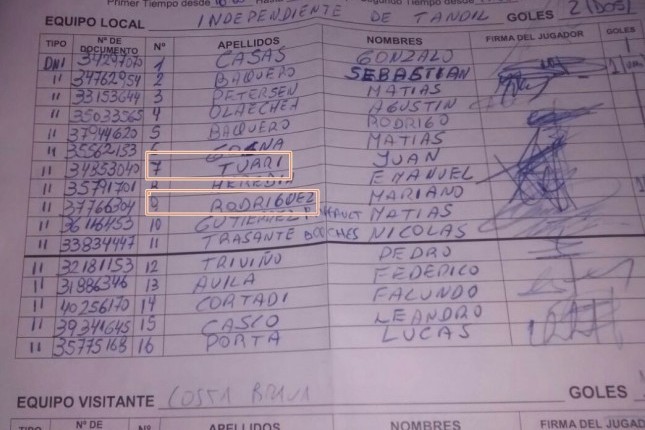 Primer Tiempo desde
Segundo Tiempo desde
EQUIPO LOCAL INDEPENDIENTE DE TANDIL GOLES 2 (DOS)
TIPO Nº DE DOCUMENTO Nº APELLIDOS NOMBRES FIRMA DEL JUGADOR GOLES
DNI 34297070 1 CASAS GONZALO
11 34762954 2 BAQUERO SEBASTIAN
11 33153644 3 PETERSEN MATIAS
11 35033565 4 OLAECHEA AGUSTIN
11 37944620 5 BAQUERO RODRIGO
11 35562153 6 MATIAS
11 34853040 7 TURRI JUAN
11 35791701 8 HEREDIA EMANUEL
11 37766304 9 RODRIGUEZ MARIANO
11 36116453 10 GUTIERREZ MATIAS
11 33834447 11 TRASANTE BOECHES NICOLAS
11 32181153 12 TRIVIÑO PEDRO
11 31986346 13 AVILA FEDERICO
11 40256170 14 CORTADI FACUNDO
11 39341645 15 CASCO LEANDRO
11 35775168 16 PORTA LUCAS
EQUIPO VISITANTE COSTA BRAVA GOLES
TIPO Nº DE Nº APELLIDOS NOMBRES FIRMA DEL JUGADOR GOLES